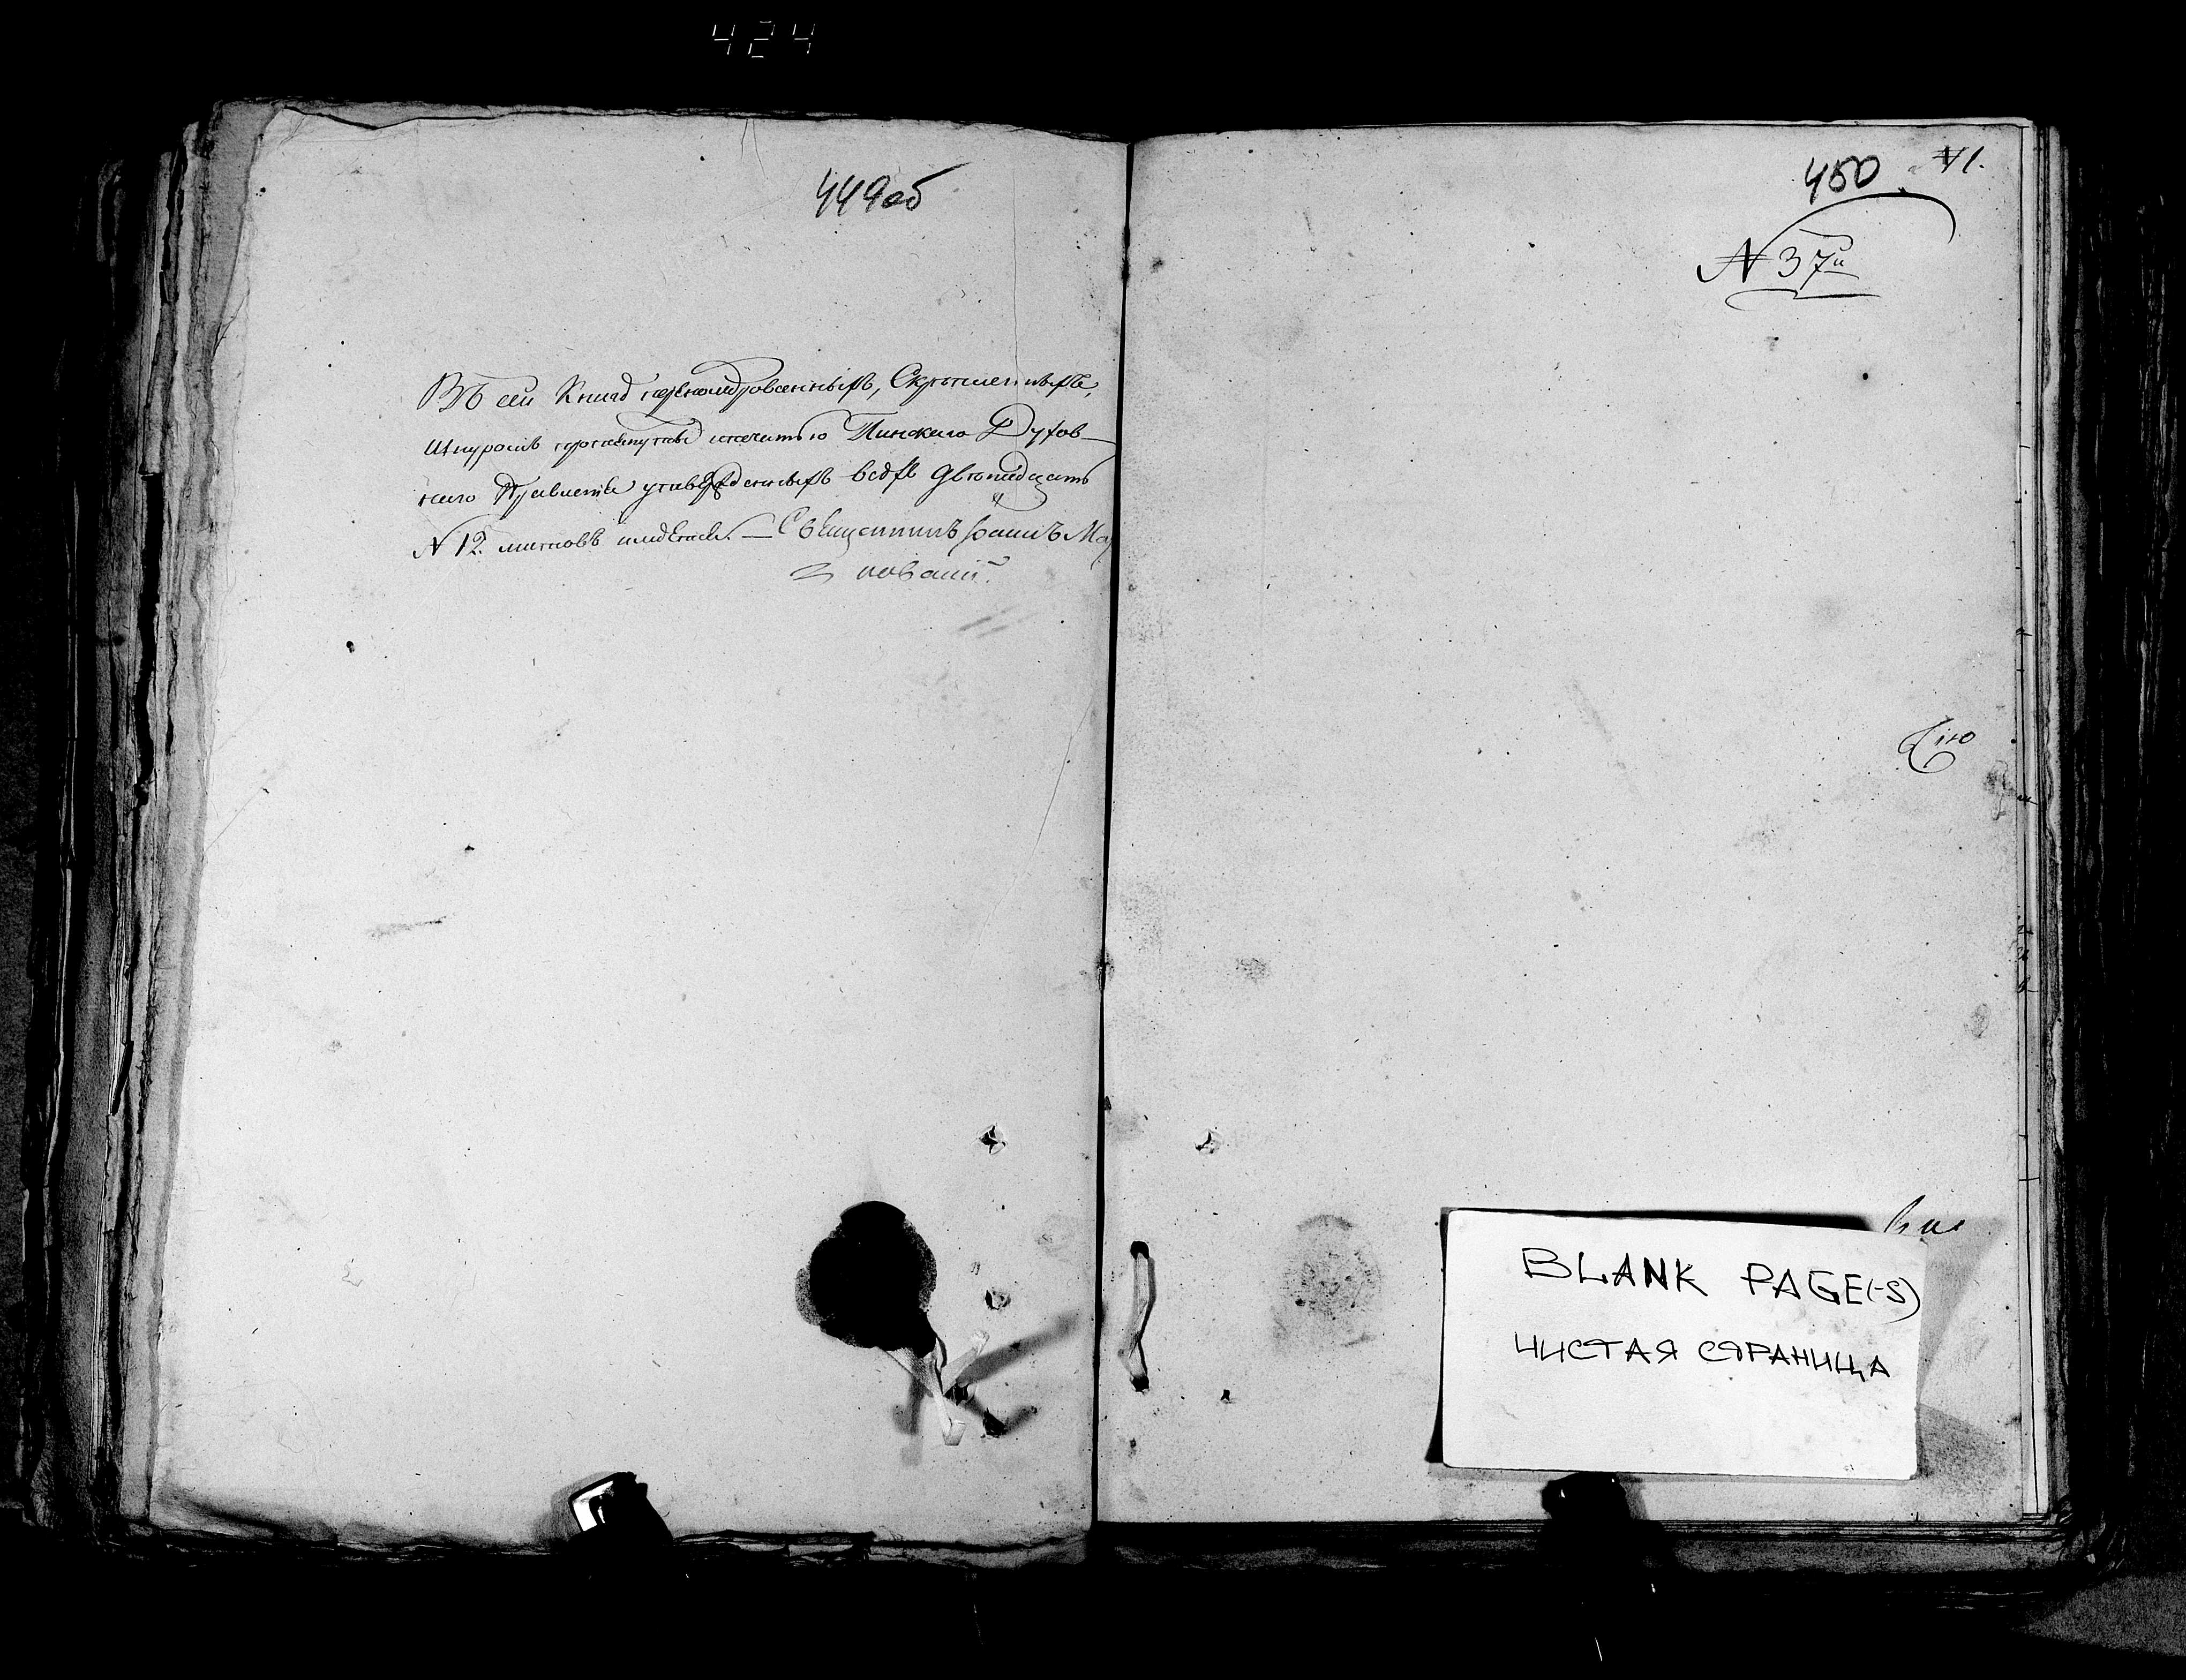 424
449об
Въ сей Книгѣ перенумерованныхъ, Скрѣпленныхъ,
Шнуромъ протянутыхъ печатью Пинскаго Духов-
наго Правленія утвержденныхъ всѣхъ двѣнадцать
№ 12. листовъ имѣется. — Священникъ Іоаннъ Ма
новский
450 VI.
№ 37й
вы
BLANK PAGE(-S)
ЧИСТАЯ СТРАНИЦА